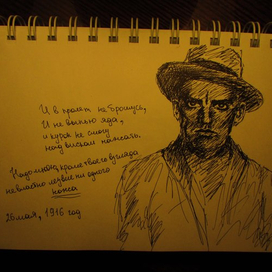 И в пролёт не брошусь,
И не выпью яда,
и курок не смогу
над виском нажать.
Надо мною, кроме твоего взгляда
не властно лезвие ни одного
ножа
26 мая, 1916 год